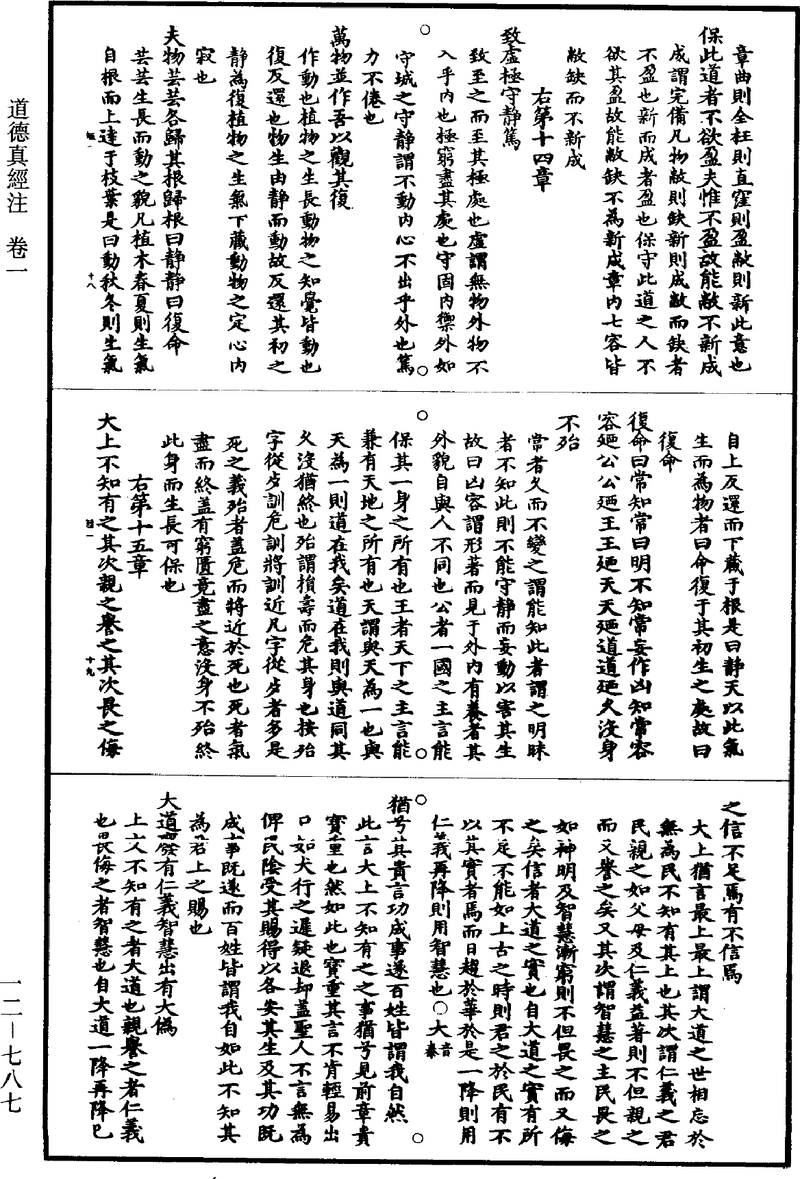 道德真經注 卷一
章曲則全枉則直窪則盈敝則新此意也
保此道者不欲盈夫惟不盈故能敝不新成
成謂完備凡物敝則缺新則成敝而缺者
不盈也新而成者盈也保守此道之人不
欲其盈故能敝缺不為新成章內七容皆
敝缺而不新成
右第十四章
致虛極守靜篤
致至之而至其極處也虛謂無物外物不
入乎內也極窮盡其處也守固內禦外如
守城之守靜謂不動內心不出乎外也篤
力不倦也
萬物並作吾以觀其復
作動也植物之生長動物之知覺皆動也
復反還也物生由靜而動故反還其初之
靜為復植物之生氣下藏動物之定心內
寂也
夫物芸芸各歸其根歸根曰靜靜曰復命
芸芸生長而動之貌凡植木春夏則生氣
自根而上達于枝葉是曰動秋冬則生氣
十八
自上反還而下藏于根是曰靜天以此氣
生而為物者曰命復于其初生之處故曰
復命
復命曰常知常曰明不知常妄作凶知常容
容廼公公廼王王廼天天廼道道廼久沒身
不殆
常者久而不變之謂能知此者謂之明昧
者不知此則不能守靜而妄動以害其生
故曰凶容謂形著而見于外內有養者其
外貌自與人不同也公者一國之主言能
保其一身之所有也王者天下之主言能
兼有天地之所有也天謂與天為一也與
天為一則道在我矣道在我則與道同其
久沒猶終也殆謂損壽而危其身也按殆
字從歺訓危訓將訓近凡字從歺者多是
死之義殆者蓋危而將近於死也死者氣
盡而終蓋有窮匱竟盡之意沒身不殆終
此身而生長可保也
右第十五章
大上不知有之其次親之譽之其次畏之侮
十九
之信不足焉有不信焉
大上猶言最上最上謂大道之世相忘於
無為民不知有其上也其次謂仁義之君
民親之如父母及仁義益著則不但親之
而又譽之矣又其次謂智慧之主民畏之
如神明及智慧漸窮則不但畏之而又侮
之矣信者大道之實也自大道之實有所
不足不能如上古之時則君之於民有不
以其實者焉而日趨於華於是一降則用
仁義再降則用智慧也○大音泰
猶兮其貴言功成事遂百姓皆謂我自然
此言大上不知有之之事猶兮見前章貴
寶重也然如此也寶重其言不肯輕易出
口如犬行之遲疑退却蓋聖人不言無為
俾民陰受其賜得以各安其生及其功既
成事既遂而百姓皆謂我自如此不知其
為君上之賜也
大道廢有仁義智慧出有大偽
上文不知有之者大道也親譽之者仁義
也畏侮之者智慧也自大道一降再降已
一二—七八七